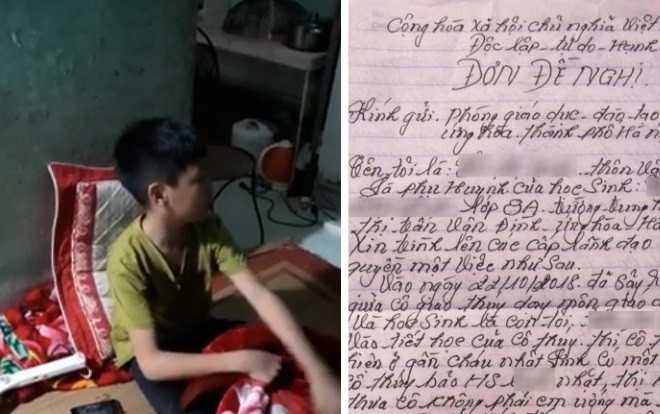 Cộng hòa xã hội chủ nghĩa việt
Độc lập - tự do - Hạnh
ĐƠN ĐỀ NGHỊ.
Kính gửi. phòng giáo dục - đào tạo
ứng hòa - thành phố Hà n
Tên tôi là: thôn vâ
Là phụ huynh của học sinh:
lớp 8A trường trung t
thị trấn vân Đình - ứng hòa - Hà
Xin trình lên các cấp lãnh đạo
quyền một việc như sau.
vào ngày 22/10/2018. đã sảy
giữa cô giáo thuy dạy môn giáo d
và học sinh là con tôi,
vào tiết học của cô thuy. thì cô t
hiện ở gần cháu nhật sinh có một
cô thuy bảo HS nhặt, thì
thưa cô không phải em uống mà